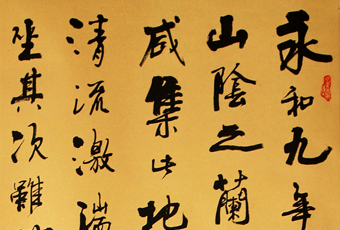 永和九年
山陰之蘭
咸集此地
清流激湍
坐其次雖